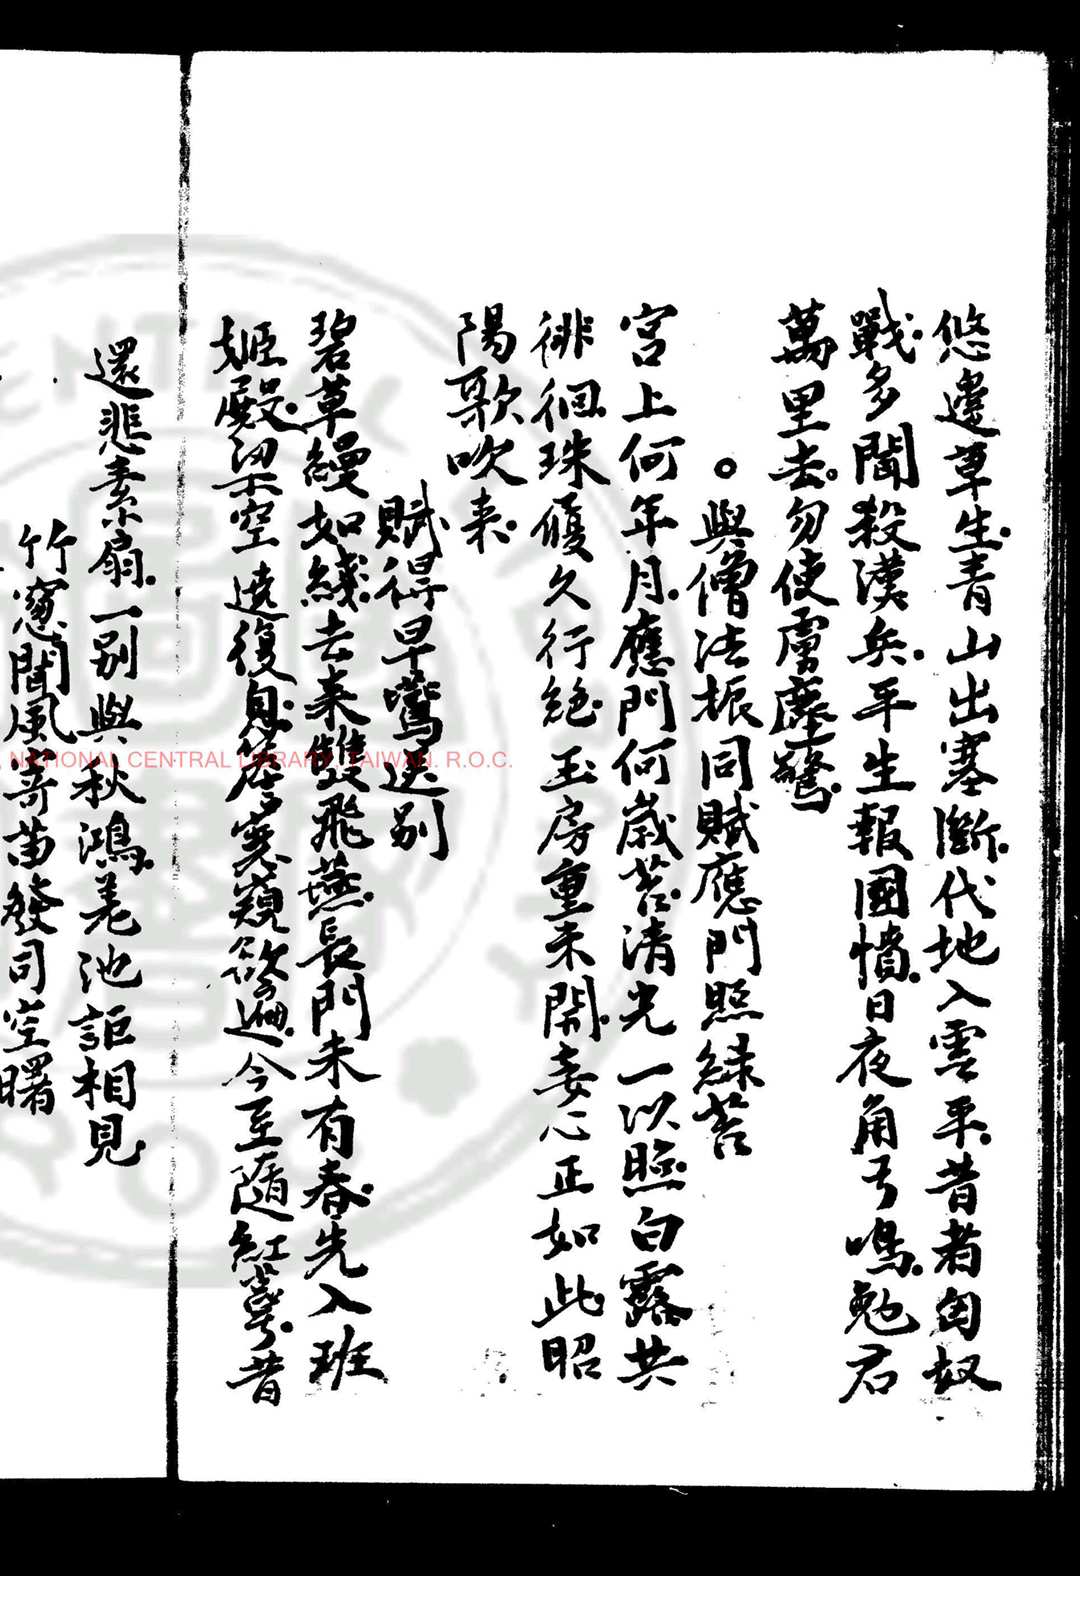 悠邊草生青山出塞斷代地入雲平昔者匈奴
戰多聞殺漢兵平生報國憤日夜角弓鳴勉君
萬里去勿使虜塵驚
。與僧法振同賦應門照綠苔
宮上何年月應門何歲苔清光一以照白露共
徘徊珠履久行絕玉房重未開妾心正如此昭
陽歌吹來
賦得早鷰送別
碧草縵如綫去來雙飛燕長門未有春先入班
姬殿梁空遶復息簷寒窺欲遍今至隨紅萼昔
還悲素扇一別與秋鴻差池詎相見
竹窻聞風寄苗發司空曙
NATIONAL CENTRAL LIBRARY, TAIWAN. R.O.C.